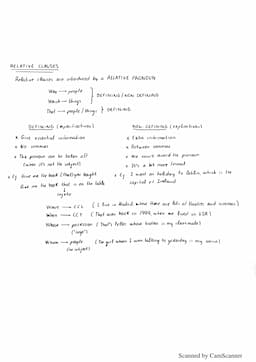 RELATIVE CLAUSES
Relative clauses are introduced by a RELATIVE PRONOUN
Who → people
Which → things
} DEFINING / NON DEFINING
That → people / things } DEFINING
DEFINING (especificativas) NON DEFINING (explicativas)
x Give essential information x Extra information
x No commas x Between commas
x The pronoun can be taken off x We cannot the pronoun
(when it's not the subject) x It's a bit more formal
x Eg Give me the book (that) you bought x Eg I went on holiday to Dublin, which is the
Give me the book that is on the table capital of Ireland
Where → CCL (I live in Madrid where there are lots of theatres and museums)
When → CCT (That was back in 1999, when we lived in USA)
Whose → possession (That's Peter whose brother is my classmate)
Whom → people (The girl whom I was talking to yesterday is my niece)
(no subject)
Scanned by CamScanner